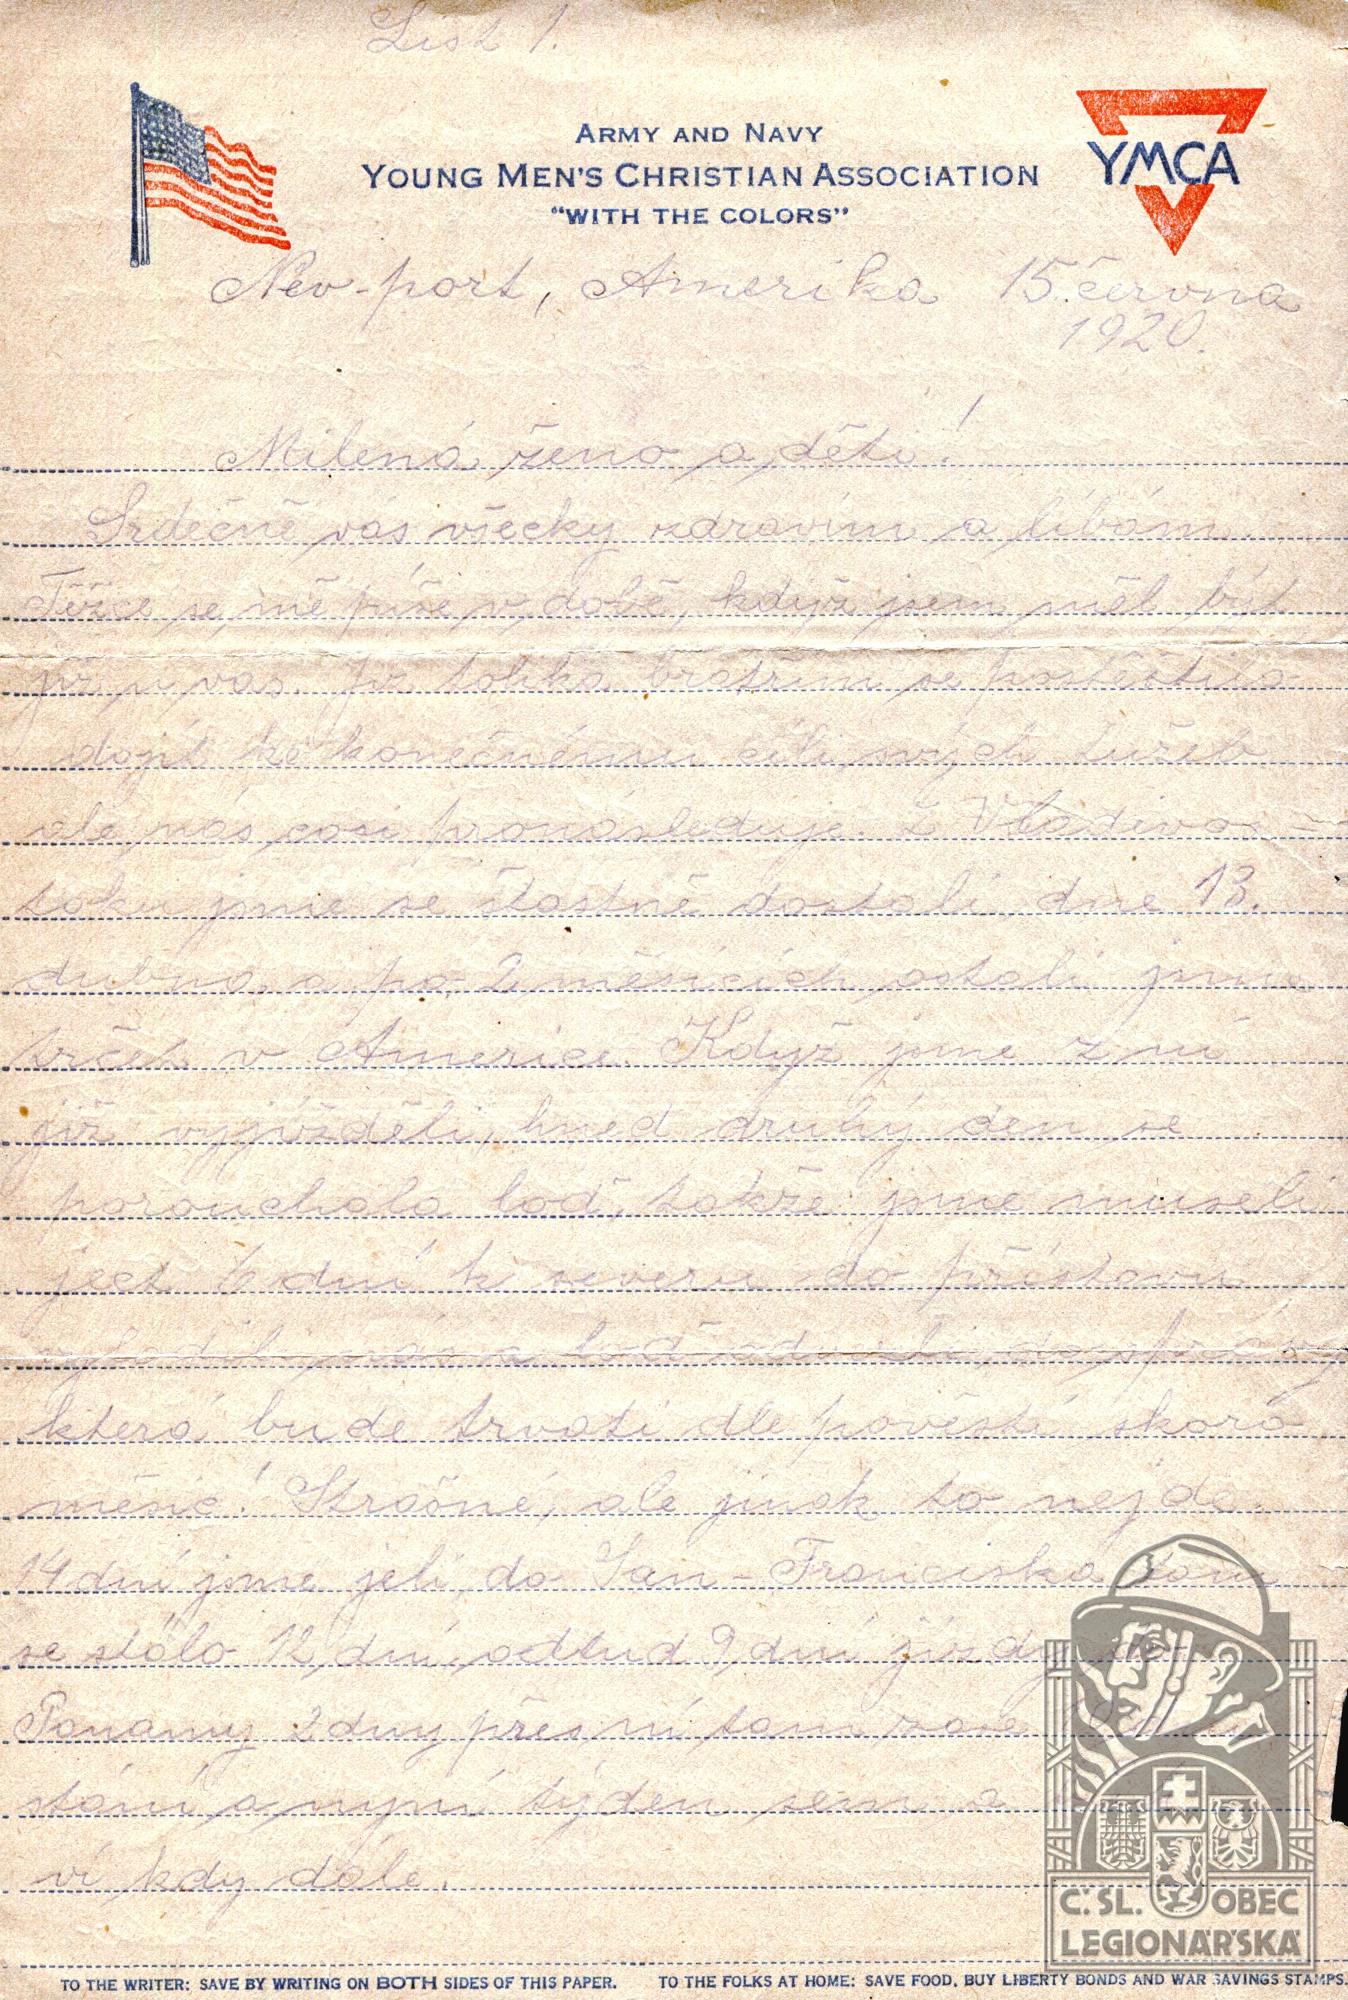 List 1.
ARMY AND NAVY
YOUNG MEN'S CHRISTIAN ASSOCIATION
"WITH THE COLORS"
YMCA
Nev-port, Amerika 15. června
1920.
Milená ženo a děti!
Srdečně vás všecky zdravím a líbám.
Těžce se mě píše v době, když jsem měl být
již u vás. Již tolika bratřím se poštěstilo
dojít ke konečnému cíli svých tužeb
ale nás cosi pronásleduje. Z Vladivos-
toku jsme se šťastně dostali dne 13.
dubna a po 2 měsících ostali jsme
trčet v Americe. Když jsme z ní
již vyjížděli, hned druhý den se
porouchala loď, takže jsme museli
ject 6 dní k severu do přístavu
vylodili nás a loď do správy
která bude trvati dle pověstí skoro
měsíc! Strašné, ale jinak to nejde.
14 dní jsme jeli do San-Franciska tam
se stálo 12 dní, odtud 9 dní jízdy do
Panamy 2 dny přes ní tam zase
stání a nyní týden sem a
ví kdy dále.
Č.SL. OBEC
LEGIONÁŘSKÁ
TO THE WRITER: SAVE BY WRITING ON BOTH SIDES OF THIS PAPER. TO THE FOLKS AT HOME: SAVE FOOD, BUY LIBERTY BONDS AND WAR SAVINGS STAMPS.